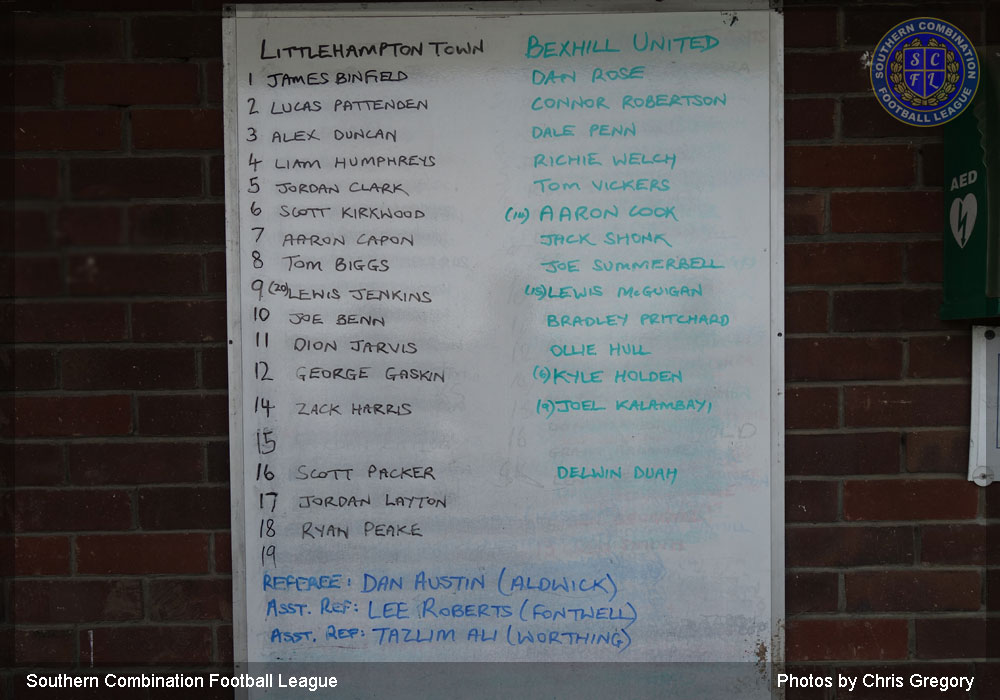 LITTLEHAMPTON TOWN BEXHILL UNITED
1 JAMES BINFIELD DAN ROSE
2 LUCAS PATTENDEN CONNOR ROBERTSON
3 ALEX DUNCAN DALE PENN
4 LIAM HUMPHREYS RICHIE WELCH
5 JORDAN CLARK TOM VICKERS
6 SCOTT KIRKWOOD AARON COOK
7 AARON CAPON JACK SHONK
8 TOM BIGGS JOE SUMMERBELL
9 (20) LEWIS JENKINS (15) LEWIS McGUIGAN
10 JOE BENN BRADLEY PRITCHARD
11 DION JARVIS OLLIE HULL
12 GEORGE GASKIN KYLE HOLDEN
14 ZACK HARRIS (9) JOEL KALAMBAYI
15
16 SCOTT PACKER DELWIN DUAH
17 JORDAN LAYTON
18 RYAN PEAKE
19
REFEREE: DAN AUSTIN (ALDWICK)
ASST. REF: LEE ROBERTS (FONTWELL)
ASST. REF: TAZLIM ALI (WORTHING)
SOUTHERN COMBINATION
SCFL
FOOTBALL LEAGUE
AED
Southern Combination Football League Photos by Chris Gregory